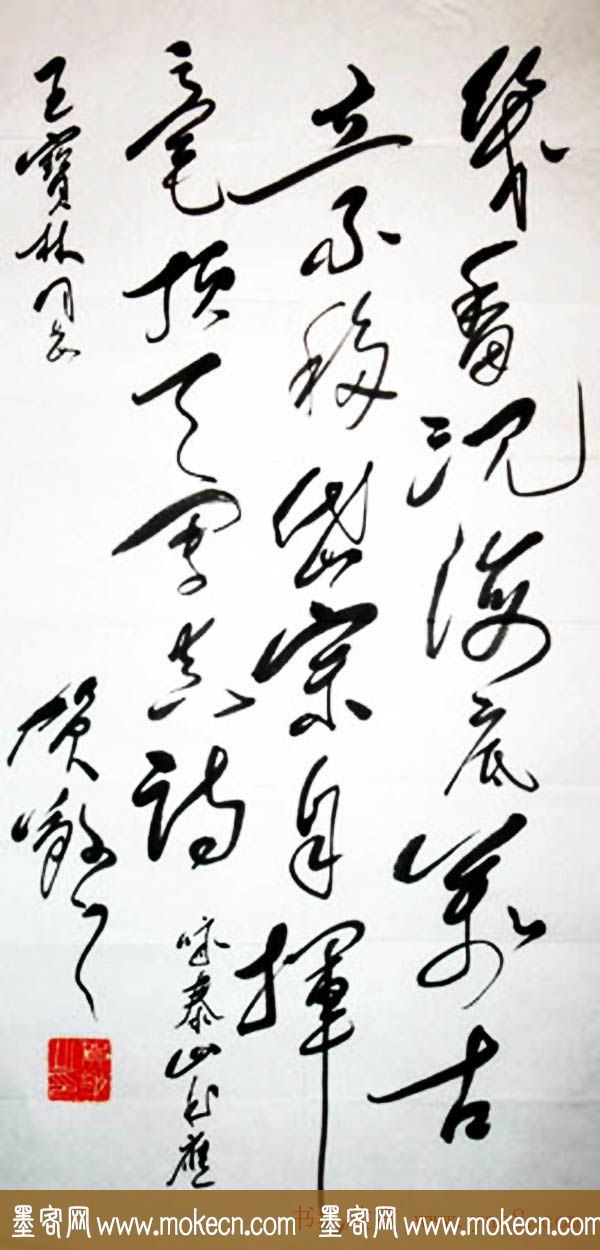 幾番沉海底萬古
立不移岱宗自揮
毫顶天写真诗
咏泰山應
王寶林同志
贺敬之
墨客网 www.mokecn.com 墨客网 www.mokecn.com